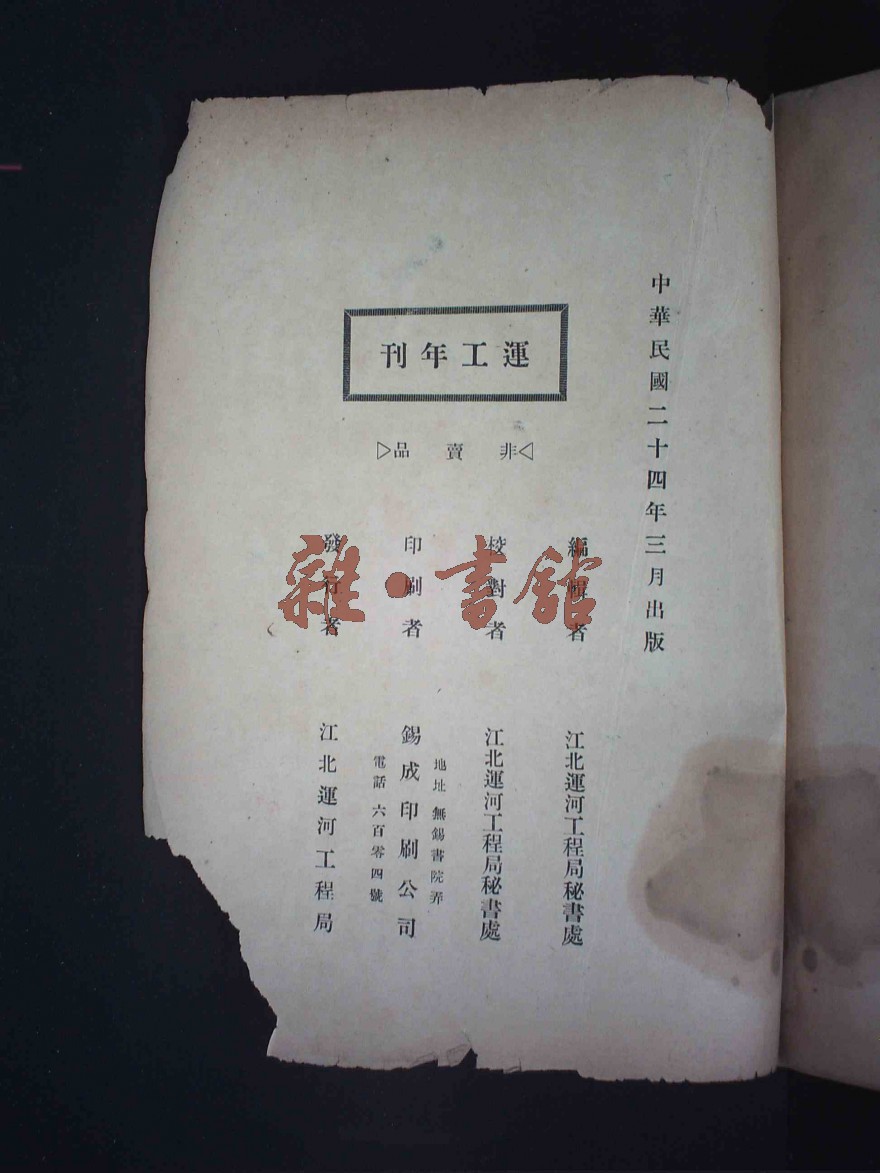 中華民國二十四年三月出版
運工年刊
▷非賣品◁
編輯者 江北運河工程局秘書處
校對者 江北運河工程局秘書處
印刷者 錫成印刷公司
地址 無錫書院弄
電話 六百零四號
發行者 江北運河工程局
雜·書館